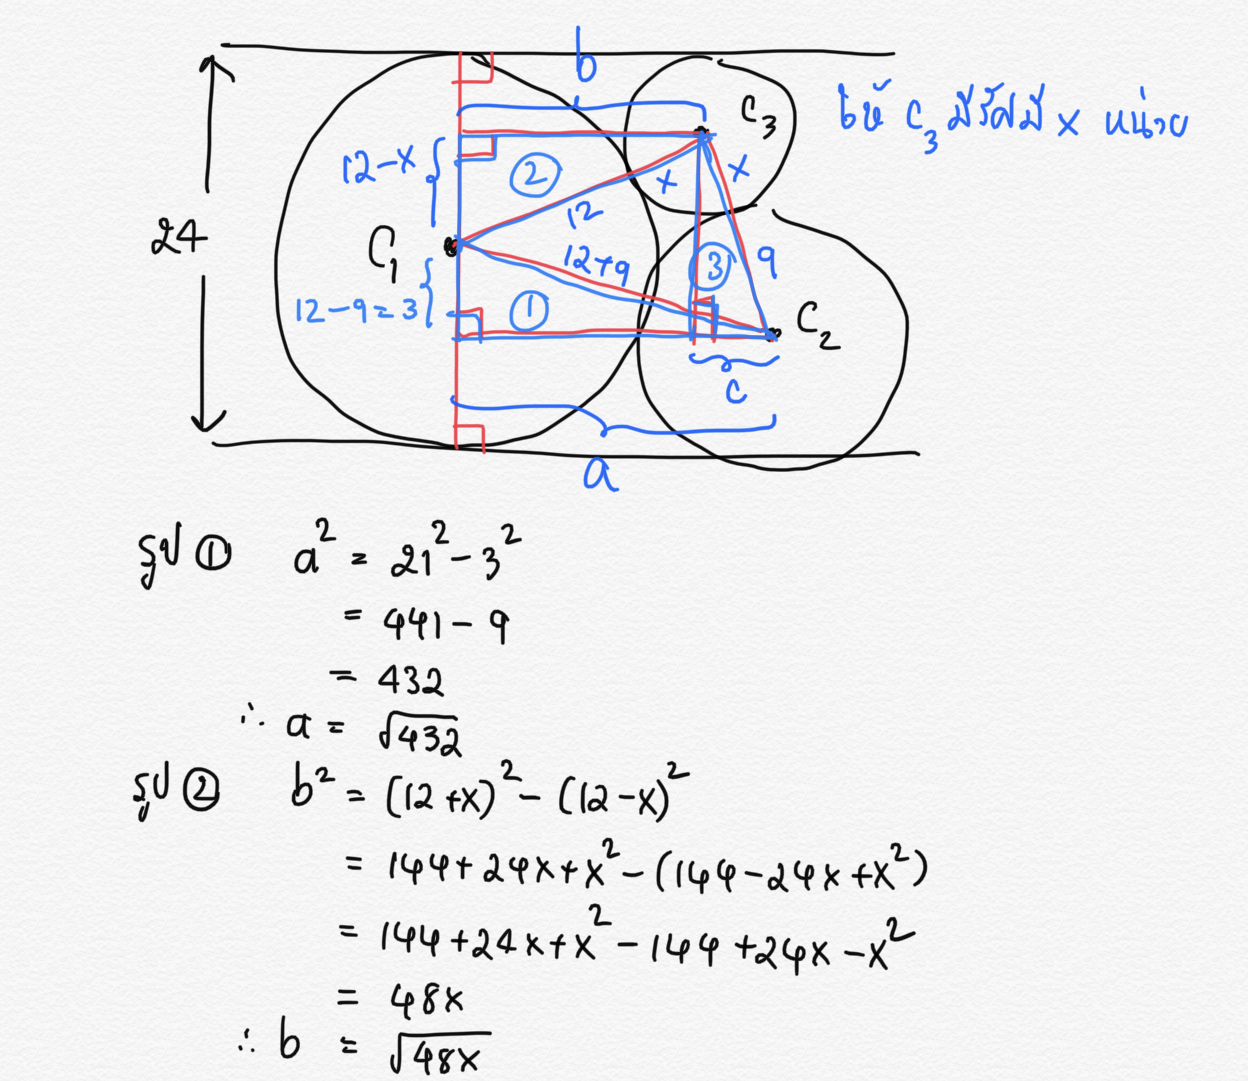 b
C₃
ให้ C₃ มีรัศมี x หน่วย
12-x
②
x
x
12
24
C₁
12+9
③
9
12-9=3
①
C₂
c
a
รูป ① a² = 21² - 3²
= 441 - 9
= 432
∴ a = √432
รูป ② b² = (12+x)² - (12-x)²
= 144 + 24x + x² - (144 - 24x + x²)
= 144 + 24x + x² - 144 + 24x - x²
= 48x
∴ b = √48x